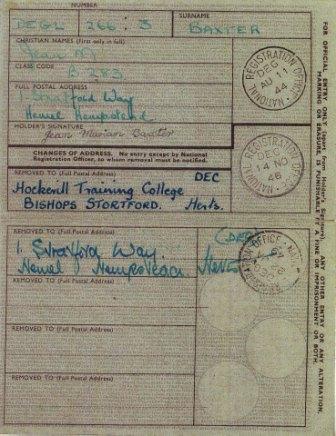 NUMBER SURNAME
DEGL 266 : 3 BAXTER
CHRISTIAN NAMES (First only in full)
Jean M
CLASS CODE
B 283
FULL POSTAL ADDRESS
1 Stratford Way
Hemel Hempstead
HOLDER'S SIGNATURE
Jean Marian Baxter
CHANGES OF ADDRESS. No entry except by National
Registration Officer, to whom removal must be notified.
REMOVED TO (Full Postal Address) DEC
Hockerill Training College
BISHOPS STORTFORD. Herts.
REMOVED TO (Full Postal Address)
1. Stratford Way
Hemel Hempstead Herts
REMOVED TO (Full Postal Address)
REMOVED TO (Full Postal Address)
REMOVED TO (Full Postal Address)
NATIONAL REGISTRATION OFFICE
DEG
AU 11
44
NATIONAL REGISTRATION OFFICE
DEG
14 NO
46
REGISTRATION OFFICE
ANY OTHER ENTRY OR ANY ALTERATION,
MARKING OR ERASURE, IS PUNISHABLE BY A FINE OR IMPRISONMENT OR BOTH.